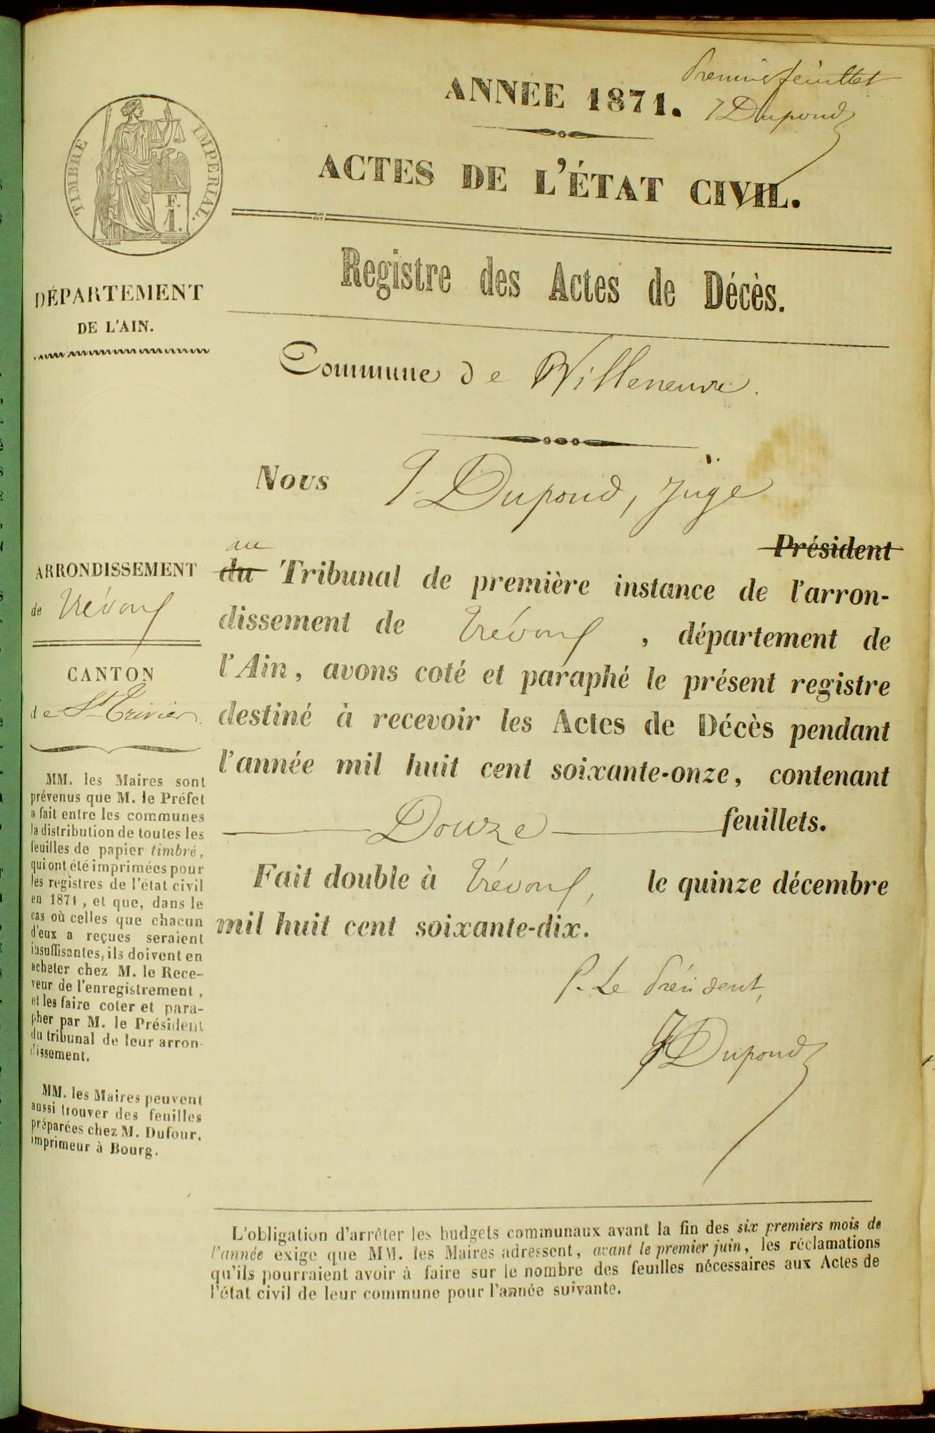 Premier feuillet
J Dupond
ANNÉE 1871.
ACTES DE L'ÉTAT CIVIL.
TIMBRE IMPÉRIAL.
F.
1.
Registre des Actes de Décès.
DÉPARTEMENT
DE L'AIN.
Commune de Villeneuve.
Nous J Dupond, juge
Président
au
du Tribunal de première instance de l'arron-
dissement de Trévoux, département de
l'Ain, avons coté et paraphé le présent registre
destiné à recevoir les Actes de Décès pendant
l'année mil huit cent soixante-onze, contenant
Douze feuillets.
Fait double à Trévoux, le quinze décembre
mil huit cent soixante-dix.
P. Le Président,
J Dupond
ARRONDISSEMENT
de Trévoux
CANTON
de St Trivier.
MM. les Maires sont
prévenus que M. le Préfet
a fait entre les communes
la distribution de toutes les
feuilles de papier timbré,
qui ont été imprimées pour
les registres de l'état civil
en 1871, et que, dans le
cas où celles que chacun
d'eux a reçues seraient
insuffisantes, ils doivent en
acheter chez M. le Rece-
veur de l'enregistrement,
et les faire coter et para-
pher par M. le Président
du tribunal de leur arron-
dissement.
MM. les Maires peuvent
aussi trouver des feuilles
préparées chez M. Dufour,
imprimeur à Bourg.
L'obligation d'arrêter les budgets communaux avant la fin des six premiers mois de
l'année exige que MM. les Maires adressent, avant le premier juin, les réclamations
qu'ils pourraient avoir à faire sur le nombre des feuilles nécessaires aux Actes de
l'état civil de leur commune pour l'année suivante.